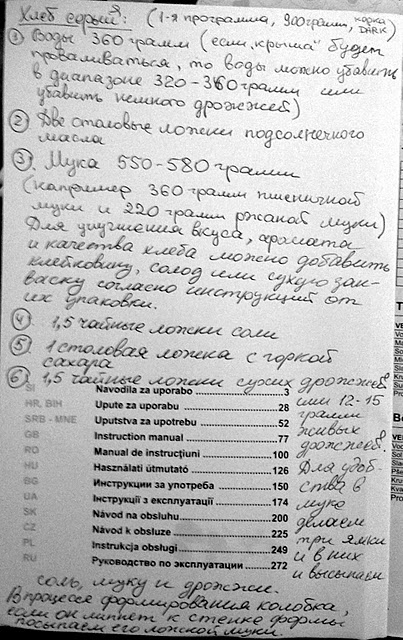 Хлеб серый: (1-я программа, 900 грамм, корка DARK)
① Воды 360 грамм (если „крыша" будет
проваливаться, то воды можно убавить
в диапазоне 320-360 грамм или
убавить немного дрожжей)
② Две столовые ложки подсолнечного
масла
③ Мука 550-580 грамм
(например 360 грамм пшеничной
муки и 220 грамм ржаной муки)
Для улучшения вкуса, аромата
и качества хлеба можно добавить
клейковину, солод или сухую зак-
васку согласно инструкций от
их упаковки.
④ 1,5 чайные ложки соли
⑤ 1 столовая ложка с горкой
сахара
⑥ 1,5 чайные ложки сухих дрожжей
SI Navodila za uporabo 3
или 12-15
HR, BIH Upute za uporabu 28
грамм
SRB - MNE Uputstva za upotrebu 52
живых
GB Instruction manual 77
дрожжей.
RO Manual de instrucţiuni 100
HU Használati útmutató 126
Для удоб-
BG Инструкции за употреба 150
ства в
UA Інструкції з експлуатації 174
муке
SK Návod na obsluhu 200
делаем
CZ Návod k obsluze 225
три ямки
PL Instrukcja obsługi 249
и в них
RU Руководство по эксплуатации 272
и высыпаем
соль, муку и дрожжи.
В процессе формирования колобка,
если он липнет к стенке формы
посыпаем его ложкой муки.